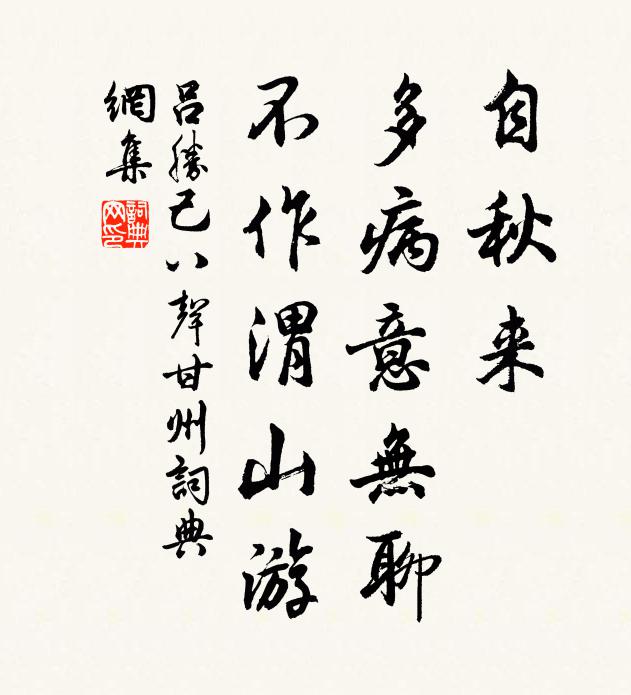 自秋来
多病意無聊
不作渭山游
呂勝己八聲甘州詞典
網集
詞典网印